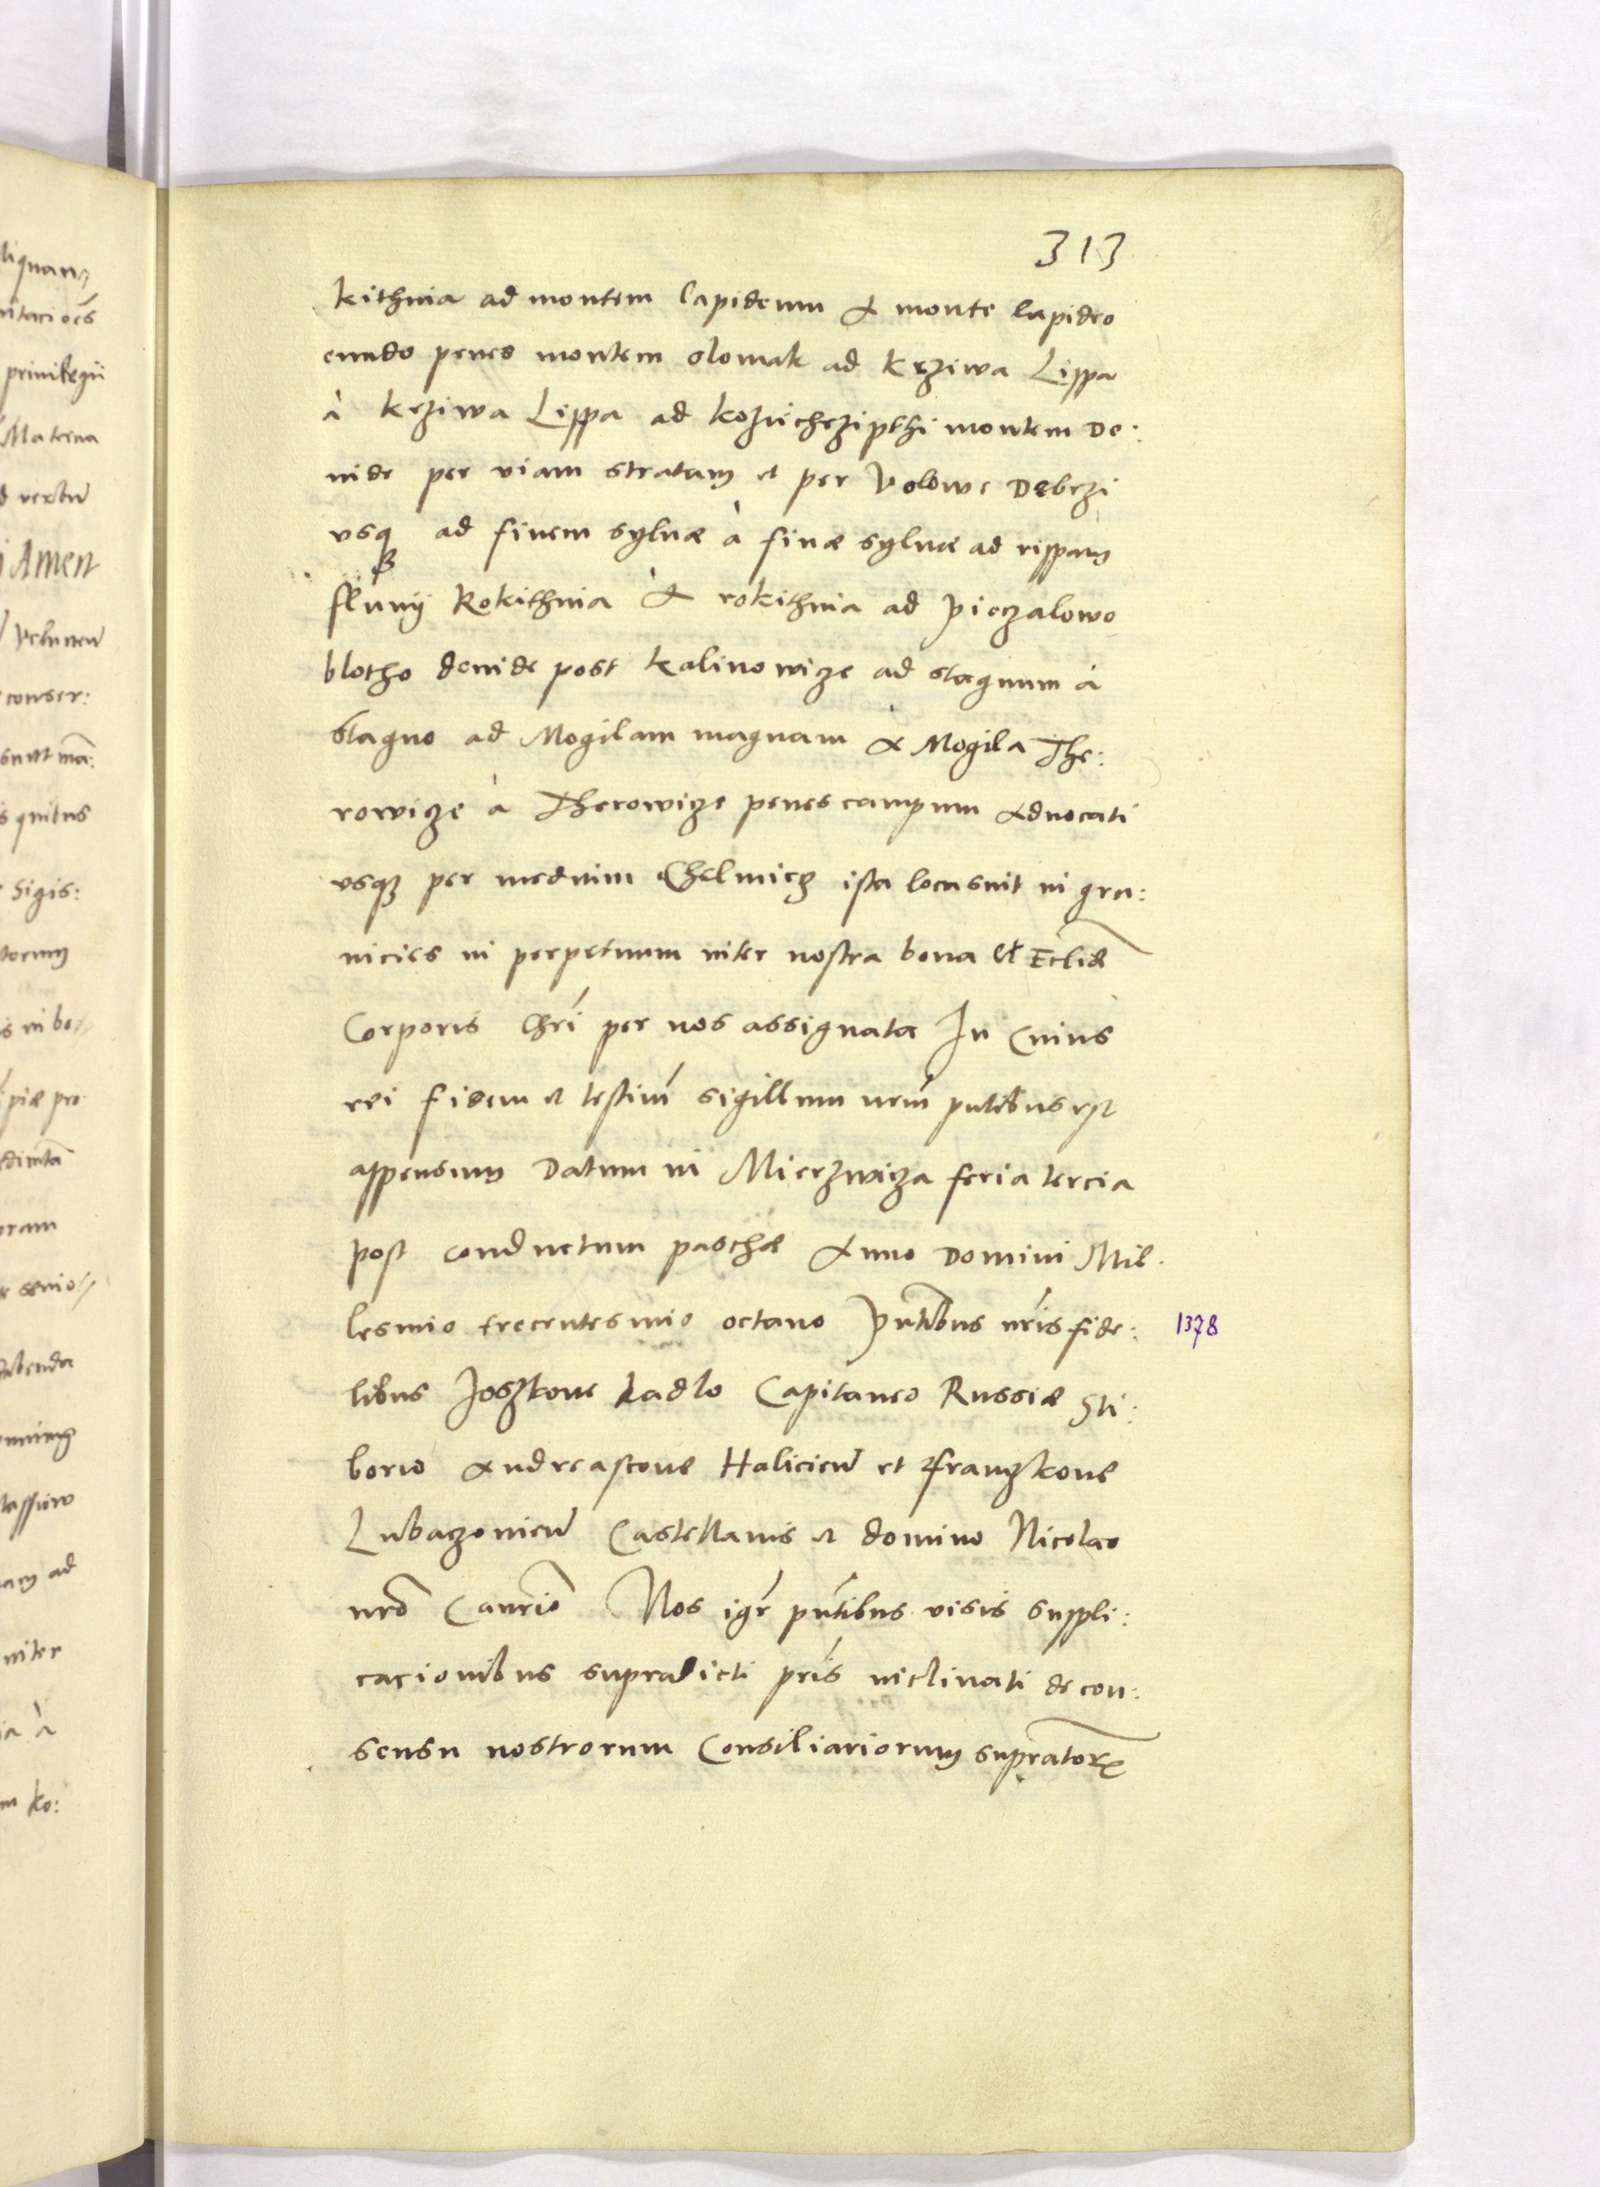 313
kithnia ad montem lapideum A monte lapideo
eundo penes montem slomak ad Krziwa Lippa
à Krziwa Lippa ad montem De:
inde per viam stratam et per Volowe Debrzi
usq ad finem sylvæ à finæ sylvæ ad rippam
fluvij Rokithnia A rokithnia ad Pieczalowo
blotho deinde post Kalinowize ad stagnum à
stagno ad Mogilam magnam A Mogila The:
rowicze à Therowicze penes campum Advocati
usq3 per medium Chelmiecz ista loca sint in gra:
nicies in perpetuum inter nostra bona et Ecliæ
Corporis Chri per nos assignata In Cuius
rei fidem et testim sigillum nrm pntibus est
appensum Datum in Mierzwicza feria tercia
post conductum paschæ Anno Domini Mil
lesimo trecentesimo octavo Pntibus nris fide:
1378
libus Joszkone Kadlo Capitaneo Russiæ Sti:
borio Andreascone Halicien et Franczkone
Lubaczovien Castellanis et domino Nicolao
nro Canrio Nos igr pntibus visis suppli:
cacionibus supradicti pris inclinati de con:
sensu nostrorum Consiliariorum supratorum
liquan
privilegii
Materna
Amen
conser:
quibus
Sigis:
piæ pro
senio
ad
inter
ia à
m ko: